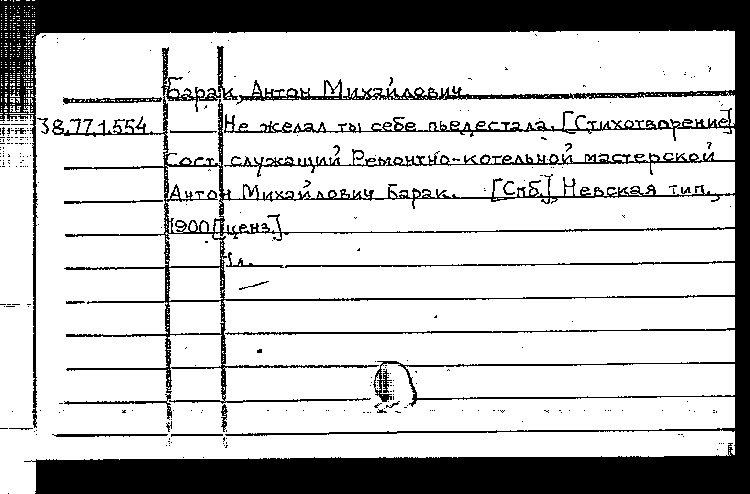 Барак, Антон Михайлович.
38.77.1.554. Не желал ты себе пьедестала. [Стихотворение]
Сост. служащий Ремонтно-котельной мастерской
Антон Михайлович Барак. [Спб.], Невская тип.,
1900 [ценз.].
1 л.